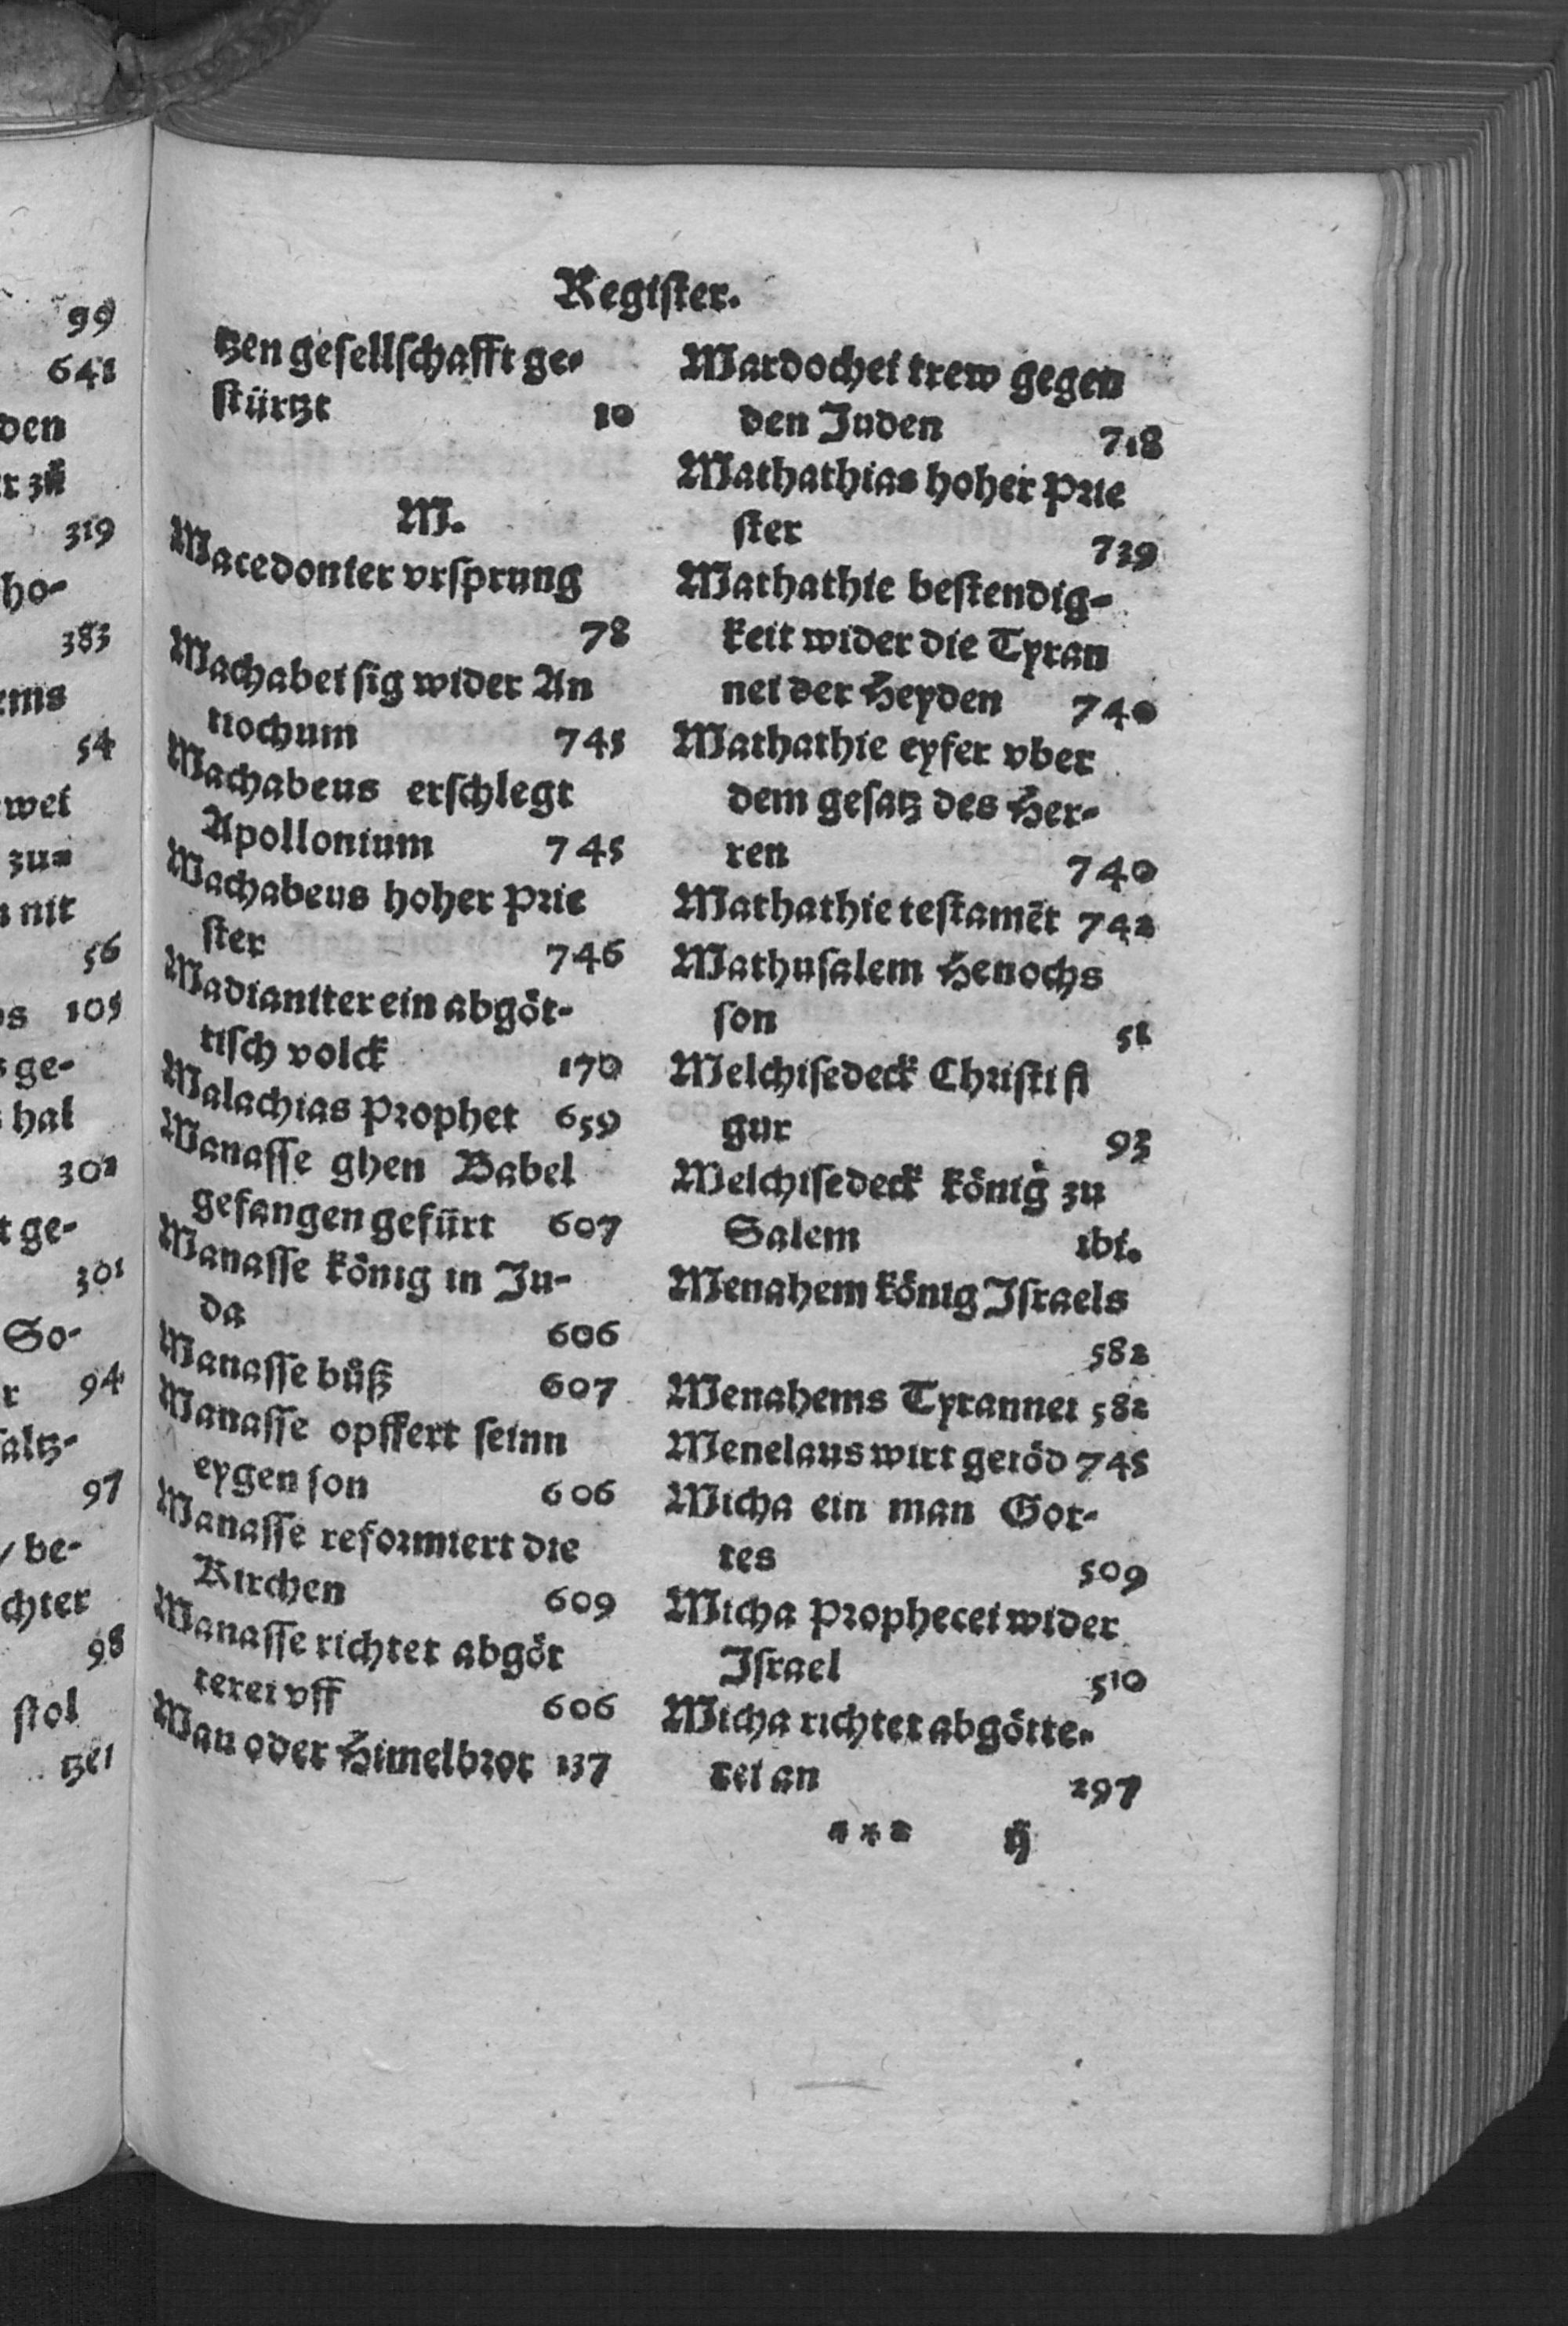 99
641
den
r zů
319
ho-
383
ems
54
wei
zu-
nit
56
os 105
ge-
hal
302
t ge-
301
So-
r 94
saltz-
97
/ be-
chter
98
stol
tzei
Register.
tzen gesellschafft ge-
stürtzt 10
M.
Macedonier vrsprung
78
Machabei sig wider An
tiochum 745
Machabeus erschlegt
Apollonium 745
Machabeus hoher Prie
ster 746
Madianiter ein abgöt-
tisch volck 170
Malachias Prophet 659
Manasse ghen Babel
gefangen gefürt 607
Manasse könig in Ju-
da 606
Manasse bůß 607
Manasse opffert seinn
eygen son 606
Manasse reformiert die
Kirchen 609
Manasse richtet abgöt
terei vff 606
Man oder Himelbrot 137
Mardochei trew gegen
den Juden 718
Mathathias hoher Prie
ster 739
Mathathie bestendig-
keit wider die Tyran
nei der Heyden 740
Mathathie eyfer vber
dem gesatz des Her-
ren 740
Mathathie testamēt 742
Mathusalem Henochs
son 51
Melchisedeck Christi fi
gur 93
Melchisedeck könig zu
Salem ibi.
Menahem könig Israels
582
Menahems Tyrannei 582
Menelaus wirt getöd 745
Micha ein man Got-
tes 509
Micha Prophecei wider
Israel 510
Micha richtet abgötte-
rei an 297
*** ij